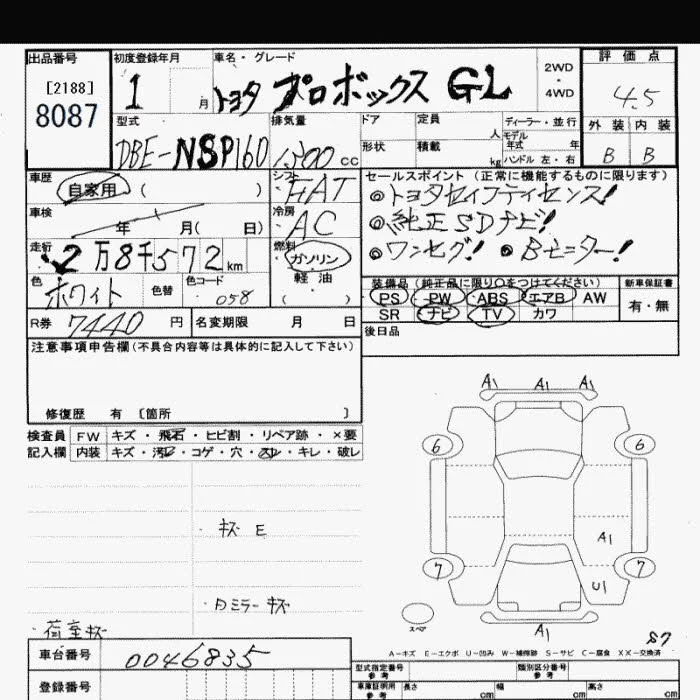 出品番号 初度登録年月 車名・グレード 評価点
[2188]
8087
1 月 トヨタ プロボックス GL 2WD・4WD 4.5
外装 内装
B B
型式 排気量 ドア 定員 人 ディーラー・並行
形状 積載 kg モデル年式 年
ハンドル 左・右
DBE-NSP160 1500 cc
車歴 自家用 ( ) シフト FAT
車検 年 月( 日) 冷房 AC
走行 2万8千572km 燃料 ガソリン
軽油
( )
色 ホワイト 色替 色コード 058
R券 7440 円 名変期限 月 日
セールスポイント (正常に機能するものに限ります)
◎トヨタセイフティセンス!
◎純正SDナビ!
◎ワンセグ! ◎Bモニター!
装備品 (純正品に限り○をつけてください) 新車保証書
PS PW ABS エアB AW 有・無
SR ナビ TV カワ
後日品
注意事項申告欄(不具合内容等は具体的に記入して下さい)
修復歴 有 [箇所 ]
検査員 FW キズ・飛石・ヒビ割・リペア跡・×要
記入欄 内装 キズ・汚レ・コゲ・穴・スレ・キレ・破レ
・キズ E
・口ミラーキズ
・荷室キズ
A1 A1 A1
6 6
A1
7 7
U1
スペア A1
87
A-キズ E-エクボ U-凹み W-補修跡 S-サビ C-腐食 XX-交換済
車台番号 0046835
登録番号
型式指定番号 参考 類別区分番号 参考
車庫証明用 参考 長さ cm 幅 cm 高さ cm